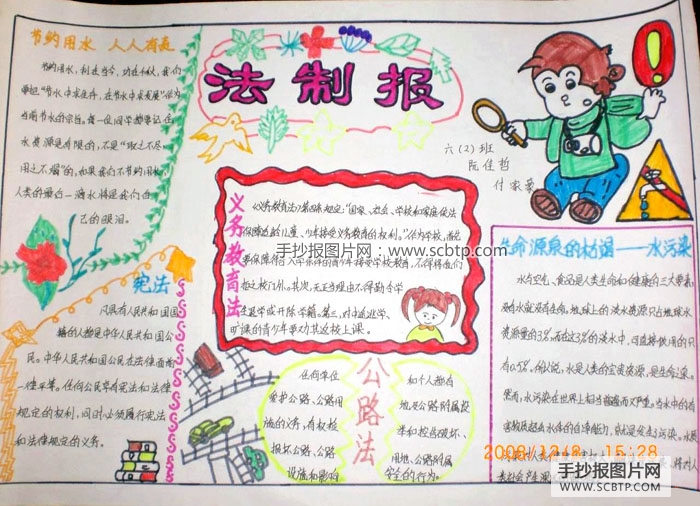 节约用水 人人有责
节约用水，利在当今，功在千秋，我们
要把“节水中求生存，在节水中求发展”作为
当前节水的宗旨。每一位同学都要记住
水资源是有限的，不是“取之不尽
用之不竭”的，如果我们不节约用水
人类的最后一滴水将是我们自
己的眼泪。
法制报
六(2)班
阮佳哲
付
宪法
凡具有人民共和国国
籍的人都是中华人民共和国公
民。中华人民共和国公民在法律面前
一律平等。任何公民享有宪法和法律
规定的权利，同时必须履行宪法
和法律规定的义务。
义务教育法
《义务教育法》第四条规定：“国家、社会、学校和家庭依法
保障适龄儿童、少年接受义务教育的权利。”作为学校，首先
要保障符合入学条件的青少年接受学校教育，不得将他们
拒之校门外。其次，无正当理由不得勒令学
生退学或开除学籍。第三，对中途逃学、
旷课的青少年要动其返校上课。
手抄报图片网：www.scbtp.com
公路法
任何单位
爱护公路、公路用
施的义务，有权检
损坏公路、公路
设施和影响
和个人都有
地及公路附属设
举和控告破坏、
用地、公路附属
安全的行为。
生命源泉的枯涸——水污染
水与空气、食品是人类生命和健康的三大要素
没有水就没有生命。地球上的淡水资源只占地球水
资源量的3%，而在这3%的淡水中，可直接饮用的只
有0.5%，所以说，水是人类的宝贵资源，是生命之泉。
然而，水污染在世界上相当普遍而又严重。当水中的有
害物质超出水体的自净能力，就是发生了污染。
2008/12/8 15:28
手抄报图片网
WWW.SCBTP.COM